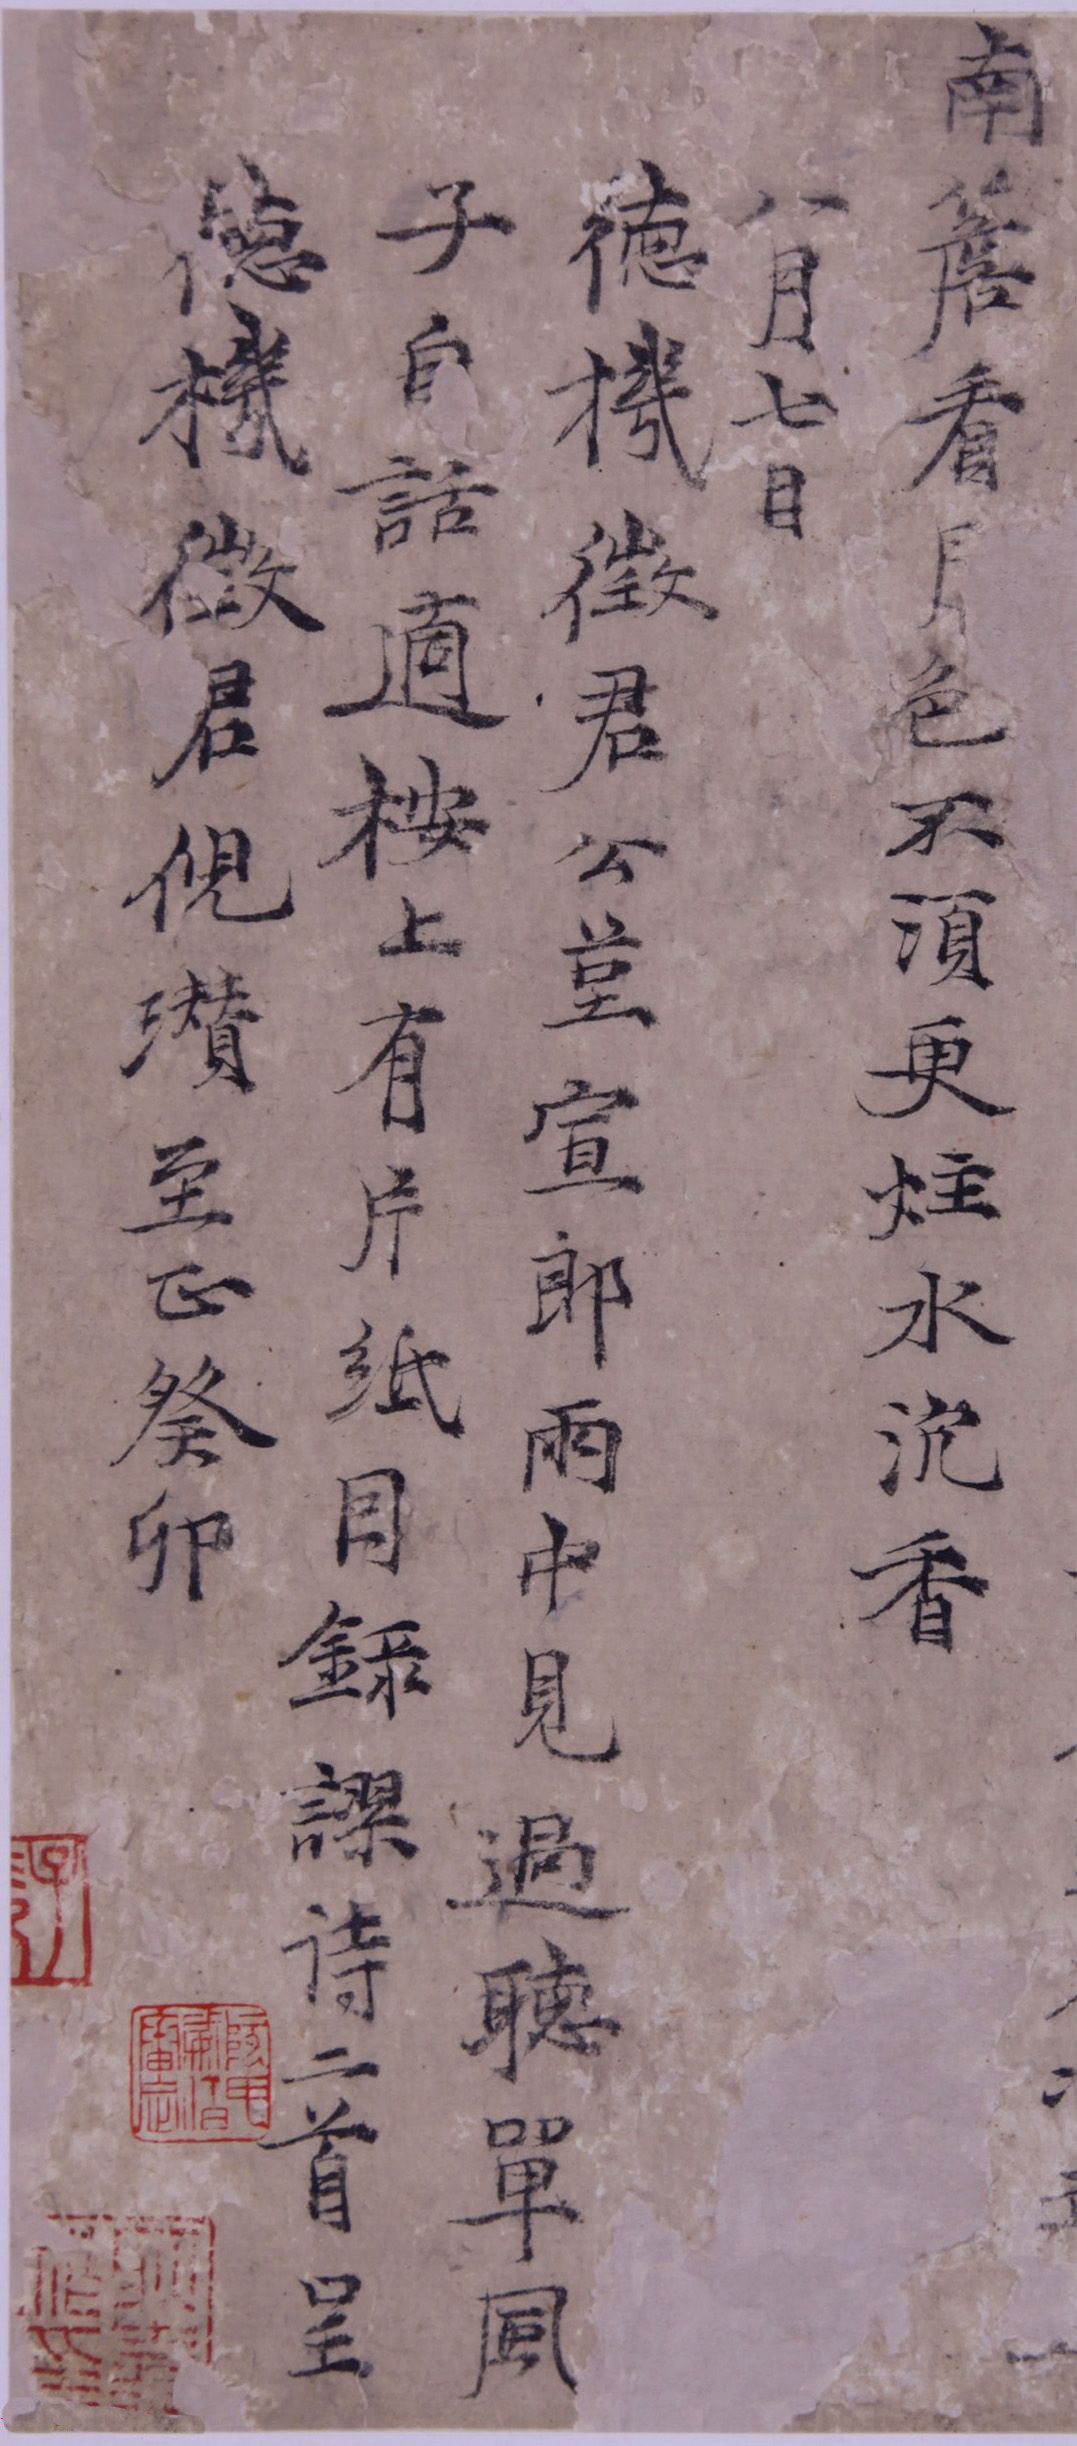 南簷看月色不須更炷水沉香
八月七日
德機徵君公莹宣郎雨中見過聽單風
子自話適桉上有片紙目錄謬詩二首呈
德機徵君倪瓚至正癸卯